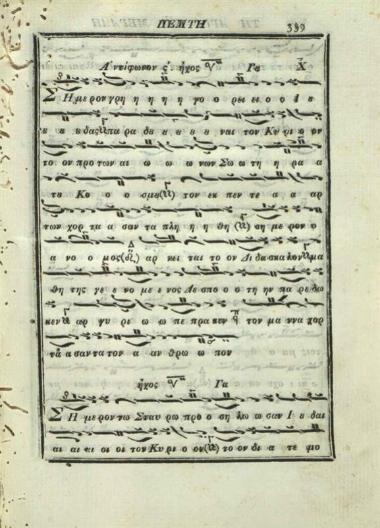 ΠΕΜΠΤΗ 389
Ἀντίφωνον ς΄. ἦχος Γα
Σ Ημερον γρη η η η η γο ο ρει ει ο ο Ι ε
ε ε ε δας παρα δι ε ε ε ε ναι τον Κυ ρι ο ον
το ον προ των αι ω ω ω νων Σω ω τη η ρα α
τε Κο ο ο σμε τον εκ πεν τε α α αρ
των χορ τα α σαν τα πλη η η θη ση με ρον ο
α νο ο μος αρ νει ται το ον Δι δα σκα λον μα
θη της γε ε νο με ε νος Δε σπο ο ο τη ην πα ρε δω
κεν αρ γυ ρι ω ω πε πρα κεν τον μα ννα χορ
τα α σαν τα τον α αν θρω ω πον
ἦχος Γα
Σ Ημερον τω Σταυ ρω προ ο ση λω ω σαν Ι ε δαι
αι αι αι οι οι τον Κυ ρι ο ον το ον δι α τε μο